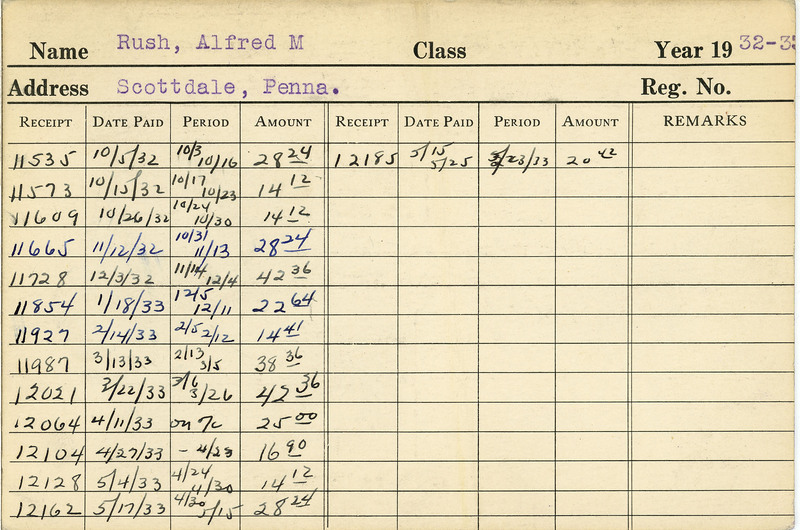 Name Rush, Alfred M Class Year 19 32-33
Address Scottdale, Penna. Reg. No.
RECEIPT DATE PAID PERIOD AMOUNT RECEIPT DATE PAID PERIOD AMOUNT REMARKS
11535 10/5/32 10/3 10/16 28 24 12185 5/15 5/25 5/23/33 20 42
11573 10/15/32 10/17 10/23 14 12
11609 10/26/32 10/24 10/30 14 12
11665 11/12/32 10/31 11/13 28 24
11728 12/3/32 11/14 12/4 42 36
11854 1/18/33 12/5 12/11 22 64
11927 2/14/33 2/5 2/12 14 41
11987 3/13/33 2/13 3/5 38 36
12021 3/22/33 3/6 3/26 42 36
12064 4/11/33 on 7c 25 00
12104 4/27/33 - 4/23 16 90
12128 5/4/33 4/24 4/30 14 12
12162 5/17/33 4/30 5/15 28 24